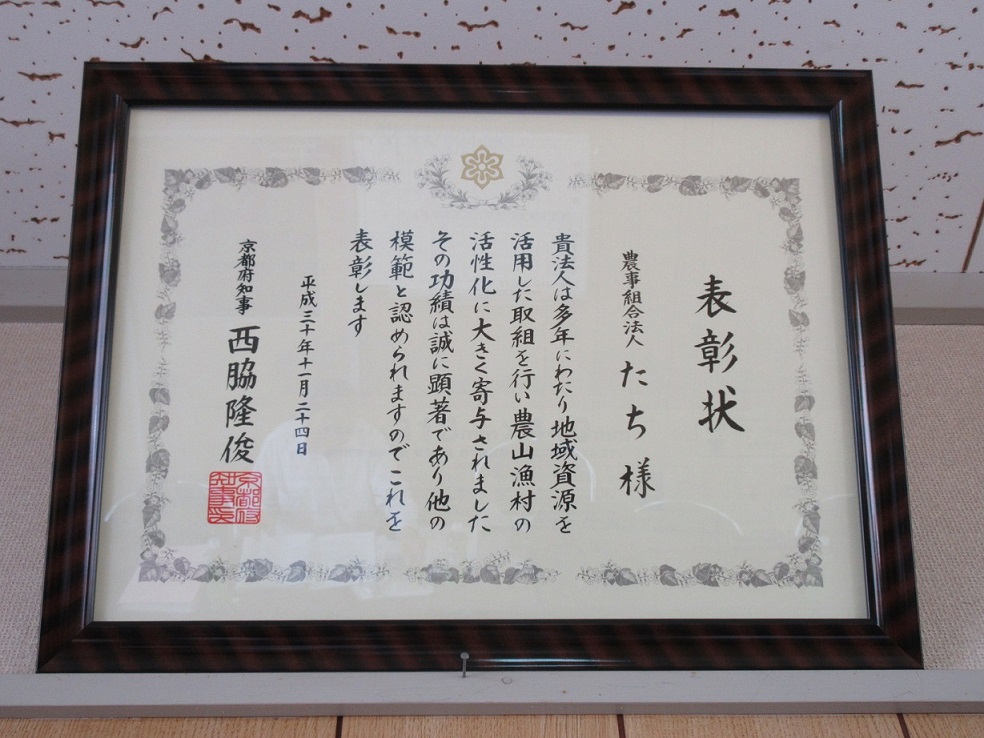 表彰状
農事組合法人 たち 様
貴法人は多年にわたり地域資源を
活用した取組を行い農山漁村の
活性化に大きく寄与されました
その功績は誠に顕著であり他の
模範と認められますのでこれを
表彰します
平成三十年十一月二十四日
京都府知事 西脇隆俊
京都府知事印